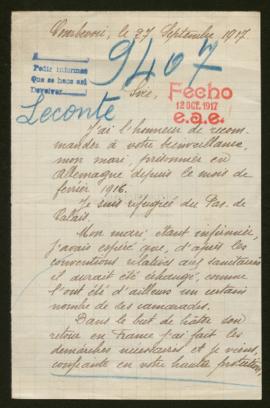 Courbevoie, le 27 Septembre 1917.
9407
Pedir informes
Que se hace así
Devolver
Fecho
12 OCT. 1917
e.a.e.
Leconte
Sire,
J'ai l'honneur de recom-
mander à votre bienveillance,
mon mari, prisonnier en
Allemagne depuis le mois de
février 1916.
Je suis réfugiée du Pas de
Calais.
Mon mari étant infirmier,
j'avais espéré que, d'après les
conventions relatives aux sanitaires
il aurait été échangé, comme
l'ont été d'ailleurs un certain
nombre de ses camarades.
Dans le but de hâter son
retour en France j'ai fait les
démarches nécessaires et je viens,
confiante en votre haute protection,